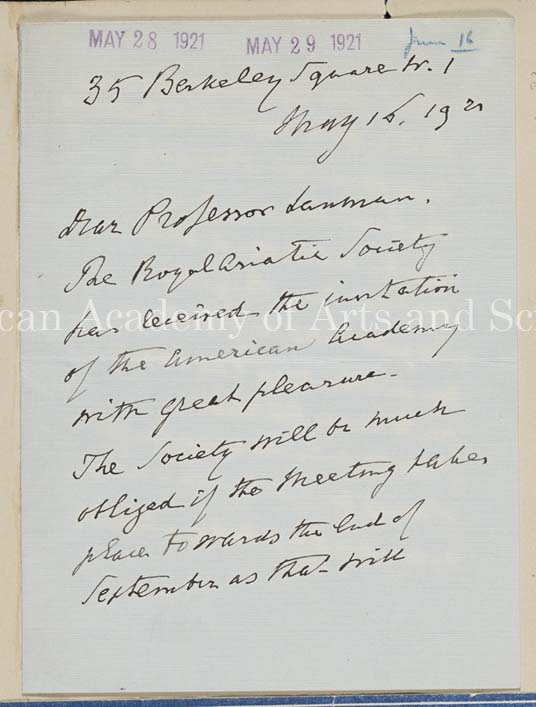 MAY 28 1921 MAY 29 1921 June 16
35 Berkeley Square W. 1
May 16. 1921
Dear Professor Lanman.
The Royal Asiatic Society
has received the invitation
can Academy of Arts and Sci
of the American Academy
with great pleasure.
The Society will be much
obliged if the Meeting takes
place towards the End of
September as that will